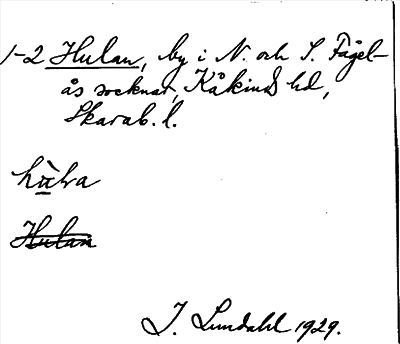 1-2 Hulan, by i N. och S. Fågel-
ås socknar, Kåkinds hd,
Skarab. l.
hùlva
Hulan
I. Lundahl 1929.